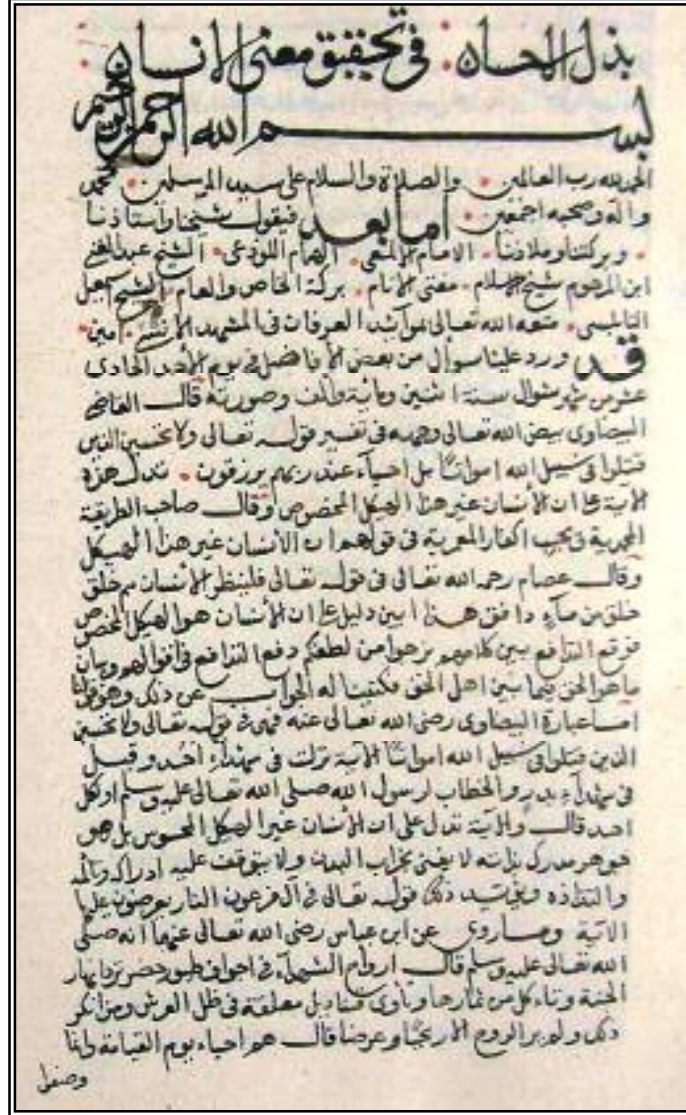 بذل الاحسان. في تحقيق معنى الانسان
بسم الله الرحمن الرحيم
الحمد لله رب العالمين. والصلاة والسلام على سيد المرسلين. محمد
واله وصحبه اجمعين. اما بعد فيقول شيخنا واستاذنا
وبركتنا وملاذنا. الامام الالمعي. الهمام اللوذعي. الشيخ عبد الغني
ابن المرحوم شيخ الاسلام. مفتي الانام. بركة الخاص والعام الشيخ اسمعيل
النابلسي. متعه الله تعالى بموائد العرفان في المشهد الانسي. امين
قد ورد علينا سوال من بعض الافاضل في يوم الاحد الحادي
عشر من شهر شوال سنة اثنين ومائة والف وصورته قال القاضي
البيضاوي بيض الله تعالى وجهه في تفسير قوله تعالى ولا تحسبن الذين
قتلوا في سبيل الله امواتا بل احياء عند ربهم يرزقون. تدل هذه
الاية على ان الانسان غير هذا الهيكل المخصوص وقال صاحب الطريقة
المحمدية ويجب اكفار المعمرية في قولهم ان الانسان غير هذا الهيكل
وقال عصام رحمه الله تعالى في قوله تعالى فلينظر الانسان مم خلق
خلق من ماء دافق هذا ابين دليل على ان الانسان هو الهيكل المخصوص
فوقع التدافع بين كلامهم نرجوا من لطفكم دفع التدافع في اقوالهم وبيان
ما هو الحق فيما بين اهل الحق فكتبنا له الجواب عن ذلك وهو قولنا
اما عبارة البيضاوي رضي الله تعالى عنه فهي في قوله تعالى ولا تحسبن
الذين قتلوا في سبيل الله امواتا الاية نزلت في شهداء احد وقيل
في شهداء بدر والخطاب لرسول الله صلى الله تعالى عليه وسلم او لكل
احد قال والاية تدل على ان الانسان غير الهيكل المحسوس بل هو
جوهر مدرك بذاته لا يفنى بخراب البدن ولا يتوقف عليه ادراكه وتالمه
والتذاذه ويؤيد ذلك قوله تعالى في آل فرعون النار يعرضون عليها
الاية وما روي عن ابن عباس رضي الله تعالى عنهما انه صلى
الله تعالى عليه وسلم قال ارواح الشهداء في اجواف طيور خضر ترد انهار
الجنة وتاءكل من ثمارها وتاوى قناديل معلقة في ظل العرش ومن انكر
ذلك ولم ير الروح الا ريحا وعرضا قال هم احياء يوم القيامة وانما
وصفوا